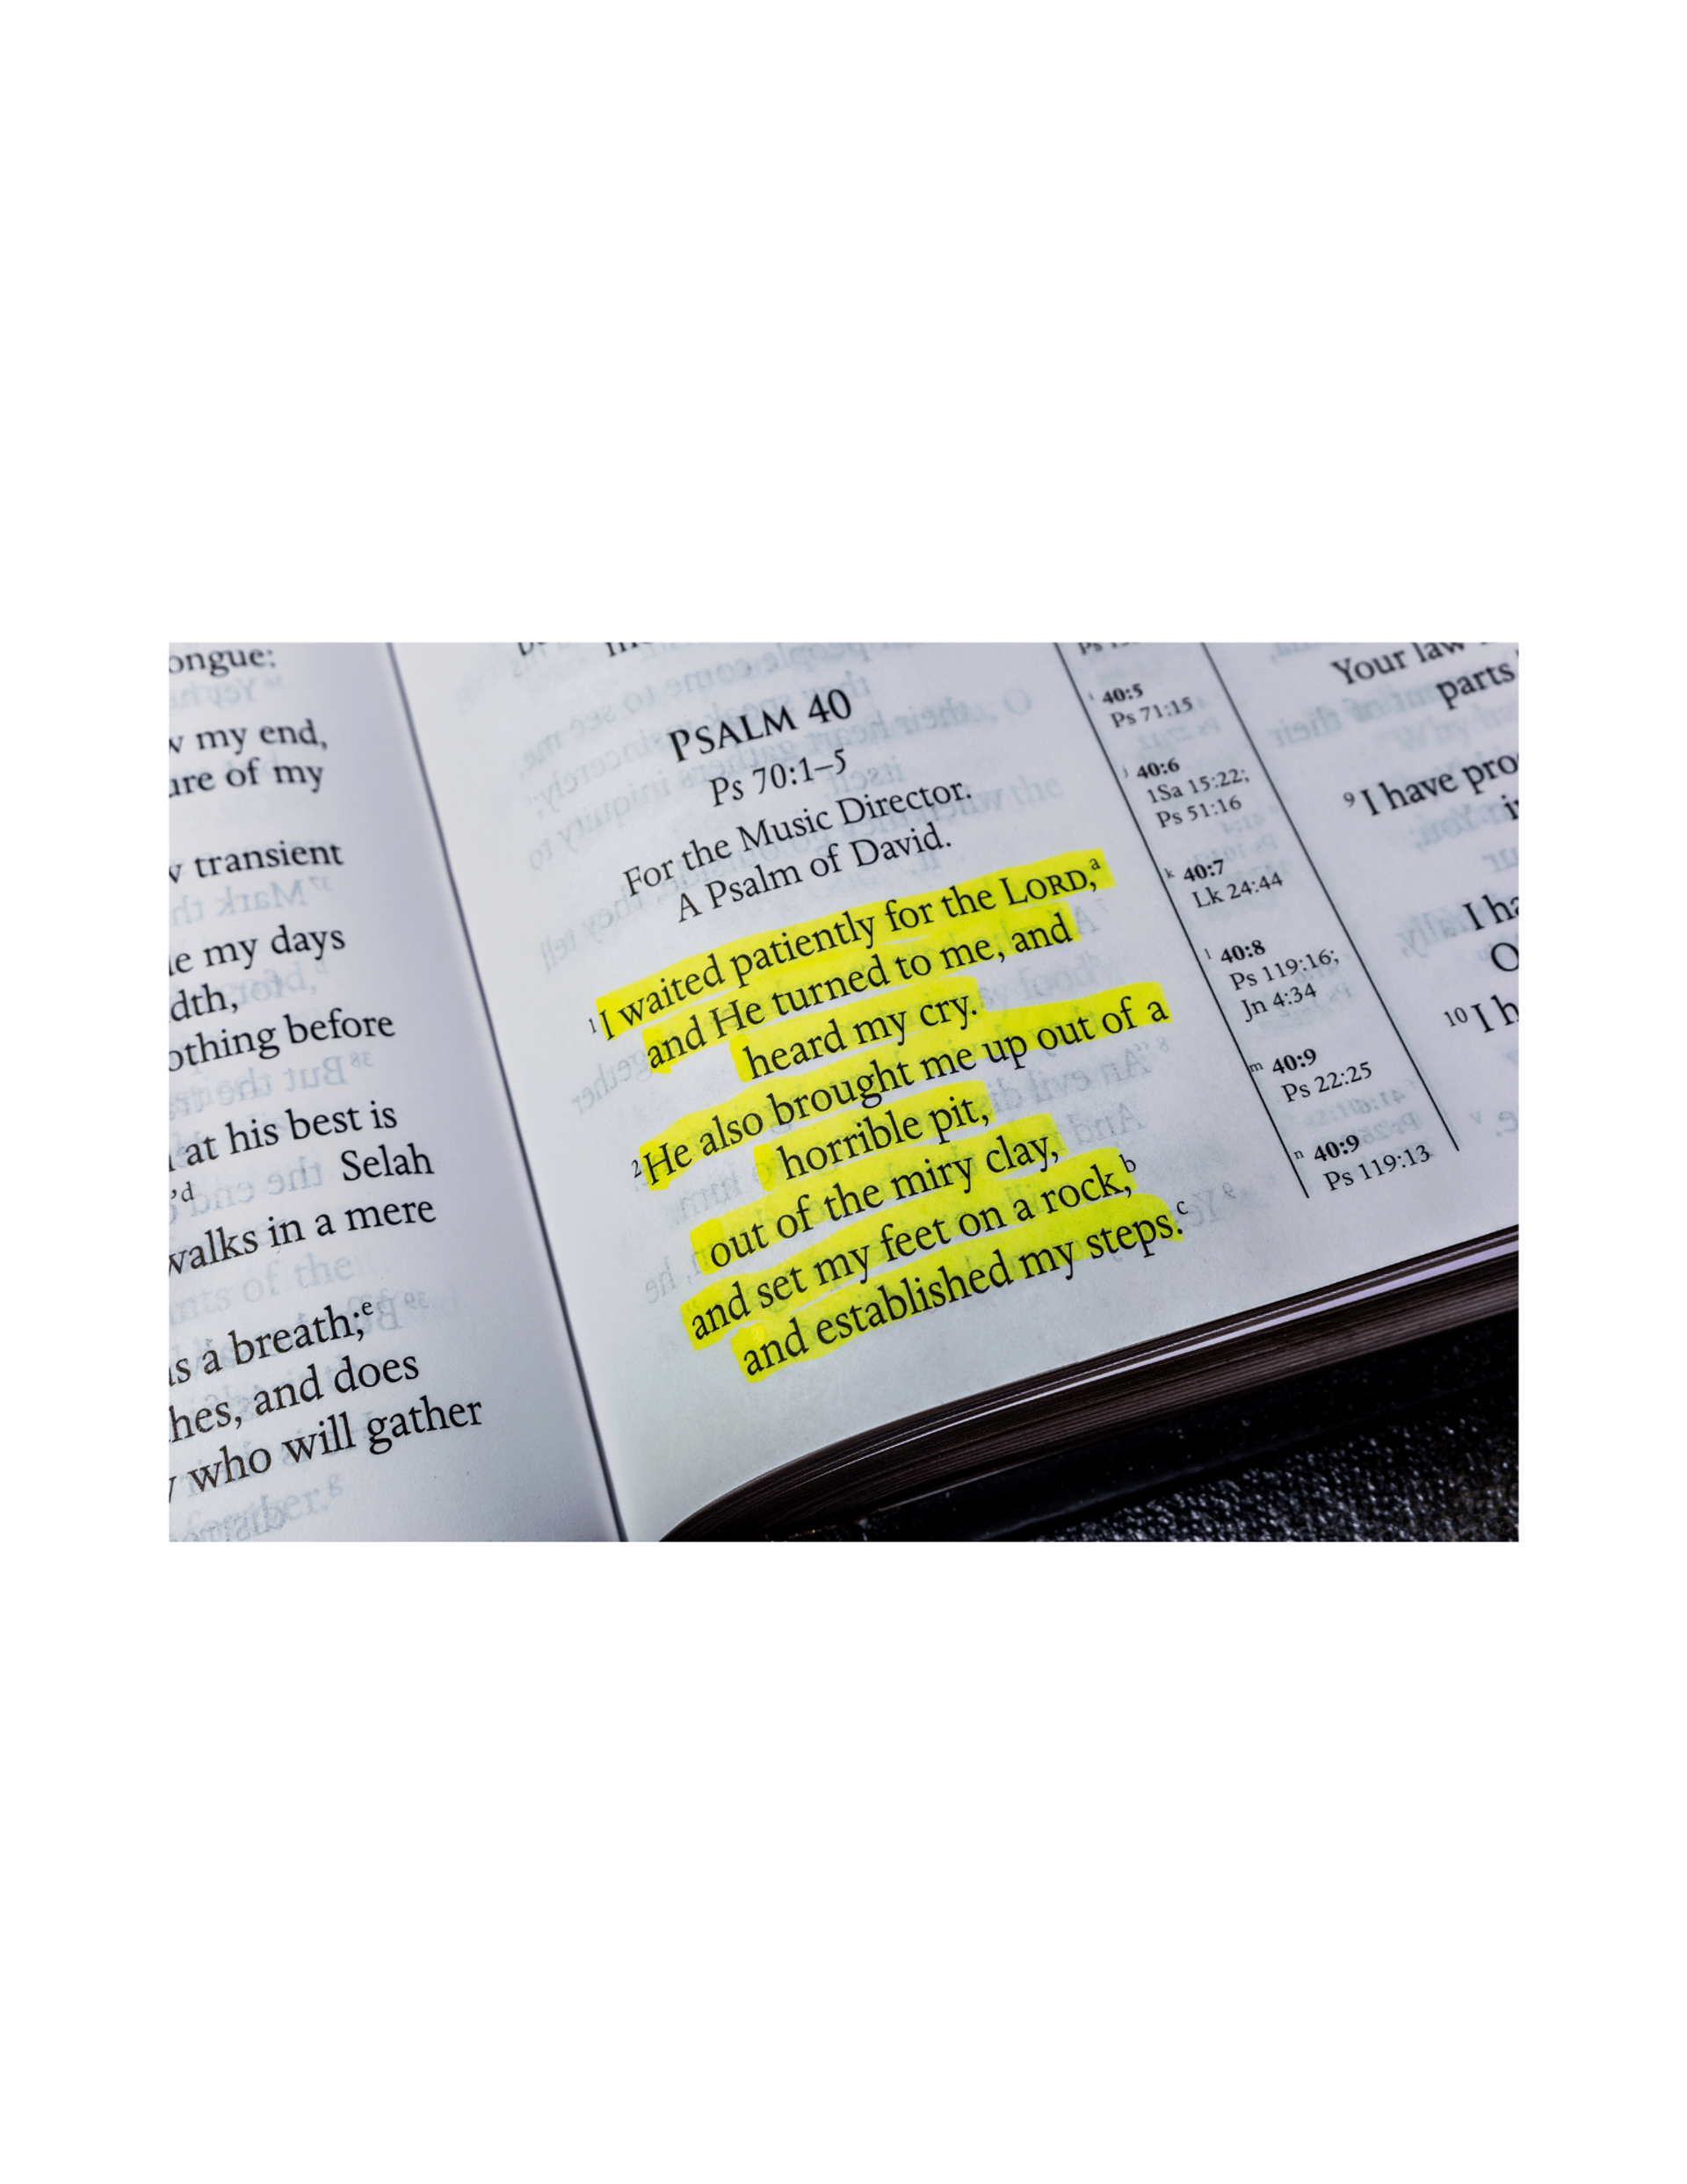 ongue:
my end,
of my
transient
my days
before
at his best is
Selah
walks in a mere
a breath;e
and does
who will gather
PSALM 40
Ps 70:1–5
For the Music Director.
A Psalm of David.
1 I waited patiently for the LORD,a
and He turned to me, and
heard my cry.
2 He also brought me up out of a
horrible pit,
out of the miry clay,
and set my feet on a rock,b
and established my steps.c
i 40:5
Ps 71:15
j 40:6
1Sa 15:22;
Ps 51:16
k 40:7
Lk 24:44
l 40:8
Ps 119:16;
Jn 4:34
m 40:9
Ps 22:25
n 40:9
Ps 119:13
Your law
parts
9 I have
I
10 I